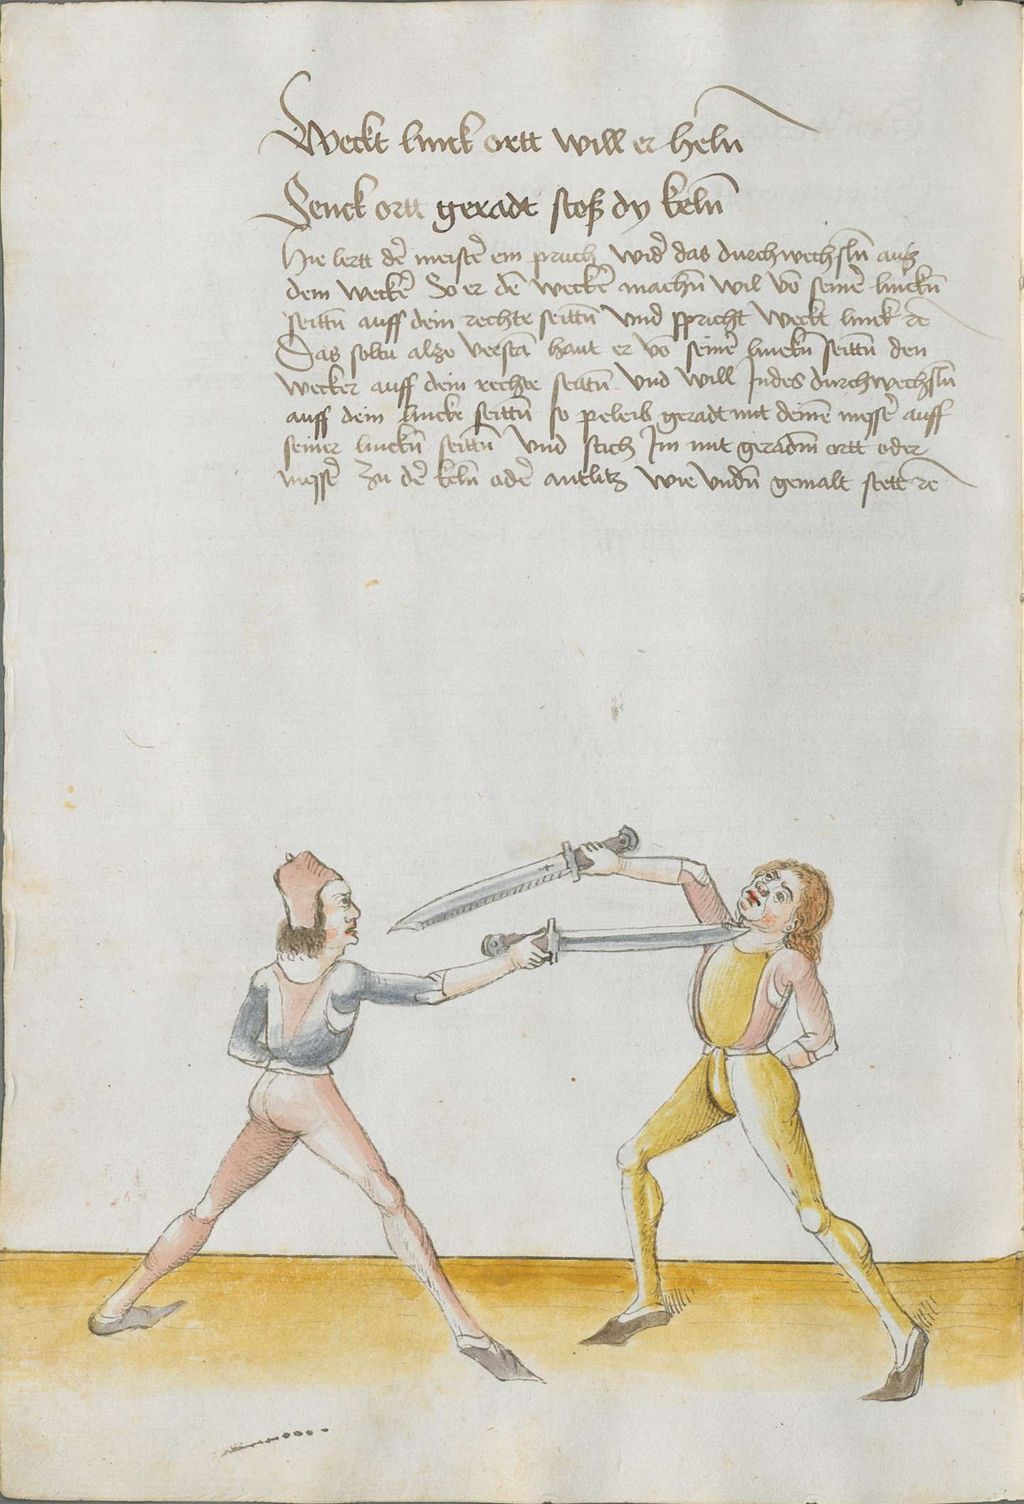 Weckt linck ortt will er heln̄
Senck ortt geradt stoß dy keln̄
Hie lertt der̄ meister̄ ein pruch wider̄ das durchwechsln̄ auß
dem wecker̄ So er den̄ wecker̄ machn̄ wil vō seiner̄ linckn̄
seittn̄ auff dein rechte seittn̄ vnd spricht weckt linck ꝛc̄
Das soltu also versta haut er vō seiner̄ linckn̄ seittn̄ den
wecker auff dein rechte seittn̄ vnd will Indes durchwechsln̄
auff dein lincke seittn̄ so peleib geradt mit deinē messer̄ auff
seiner linckn̄ seittn̄ vnd stich Im mit geradm̄ ortt oder
messer̄ zu der̄ keln̄ oder̄ antlitz wie vndn̄ gemalt stett ꝛc̄